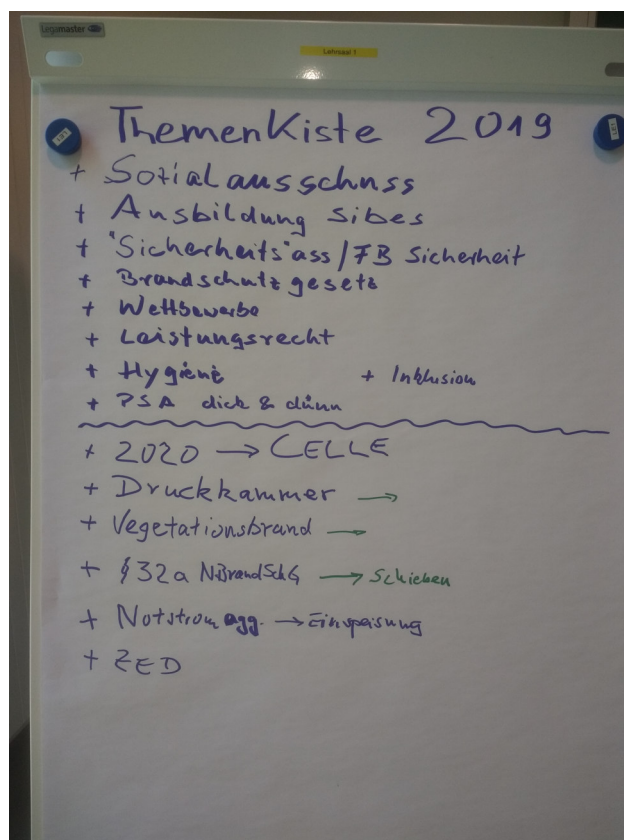 Legamaster
Lehrsaal 1
ThemenKiste 2019
+ Sozialausschuss
+ Ausbildung Sibes
+ "Sicherheits"ass/FB Sicherheit
+ Brandschutzgesetz
+ Wettbewerbe
+ Leistungsrecht
+ Hygiene + Inklusion
+ PSA dick & dünn
+ 2020 → CELLE
+ Druckkammer →
+ Vegetationsbrand →
+ §32a NBrandSchG → Schieben
+ Notstromagg. → Einspeisung
+ ZED